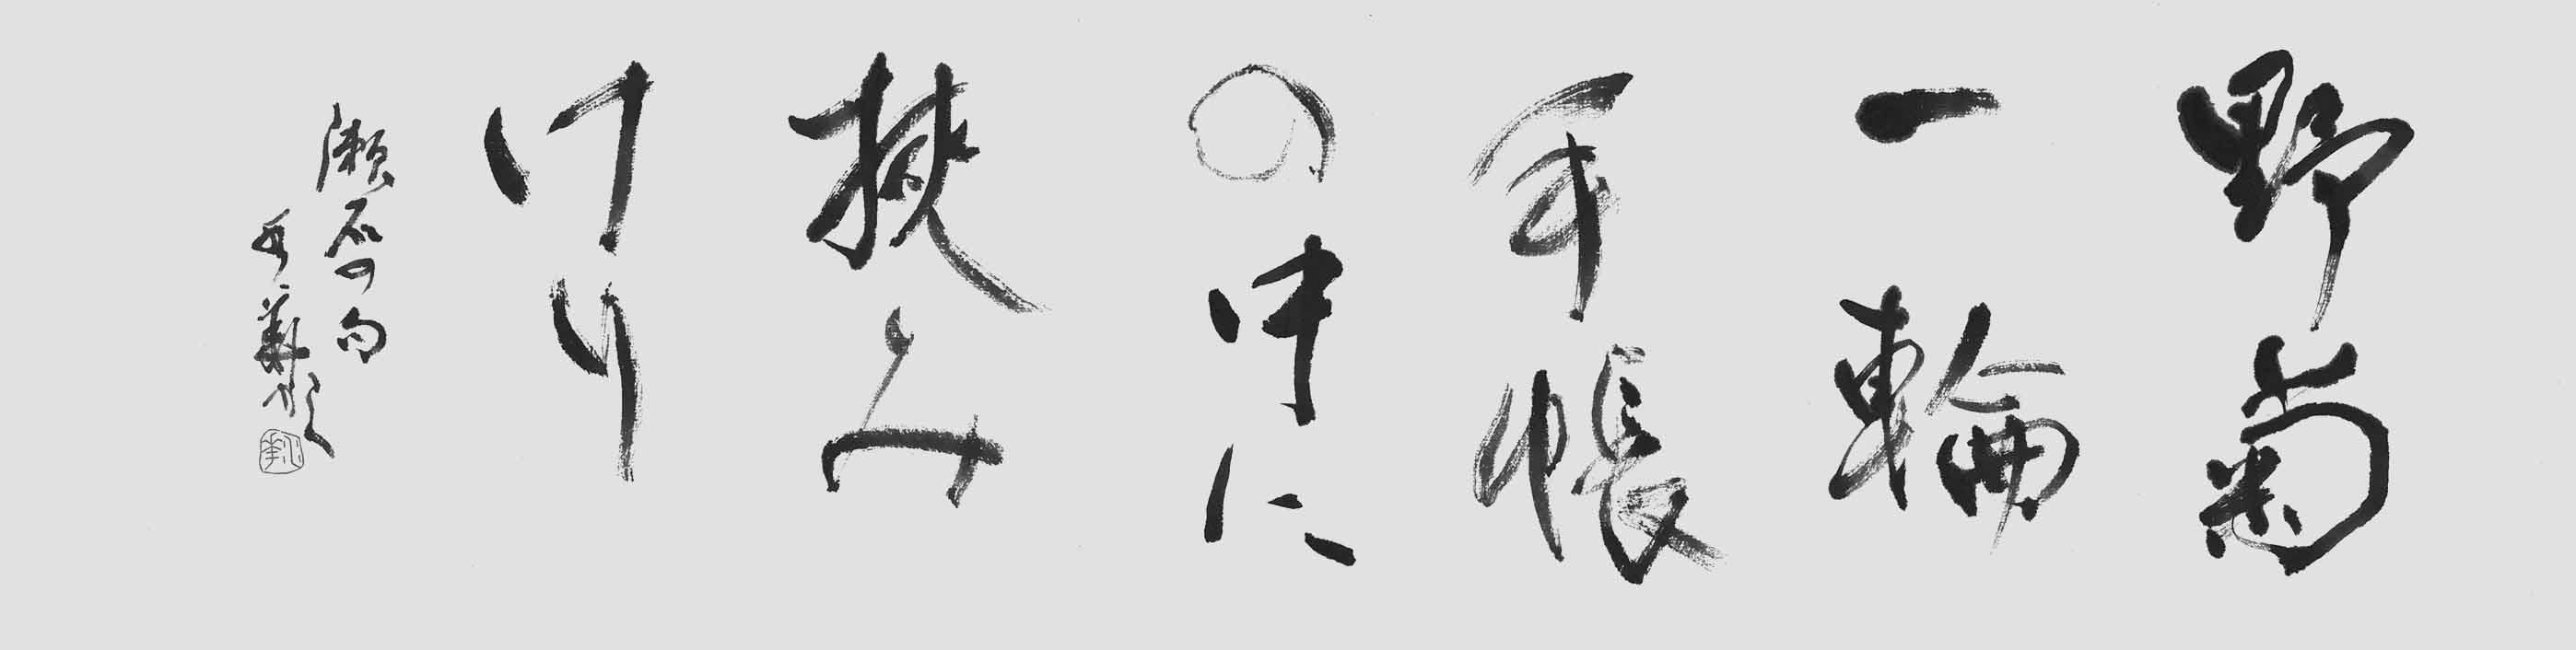 野菊
一輪
手帳
の中に
挟み
けり
漱石の句